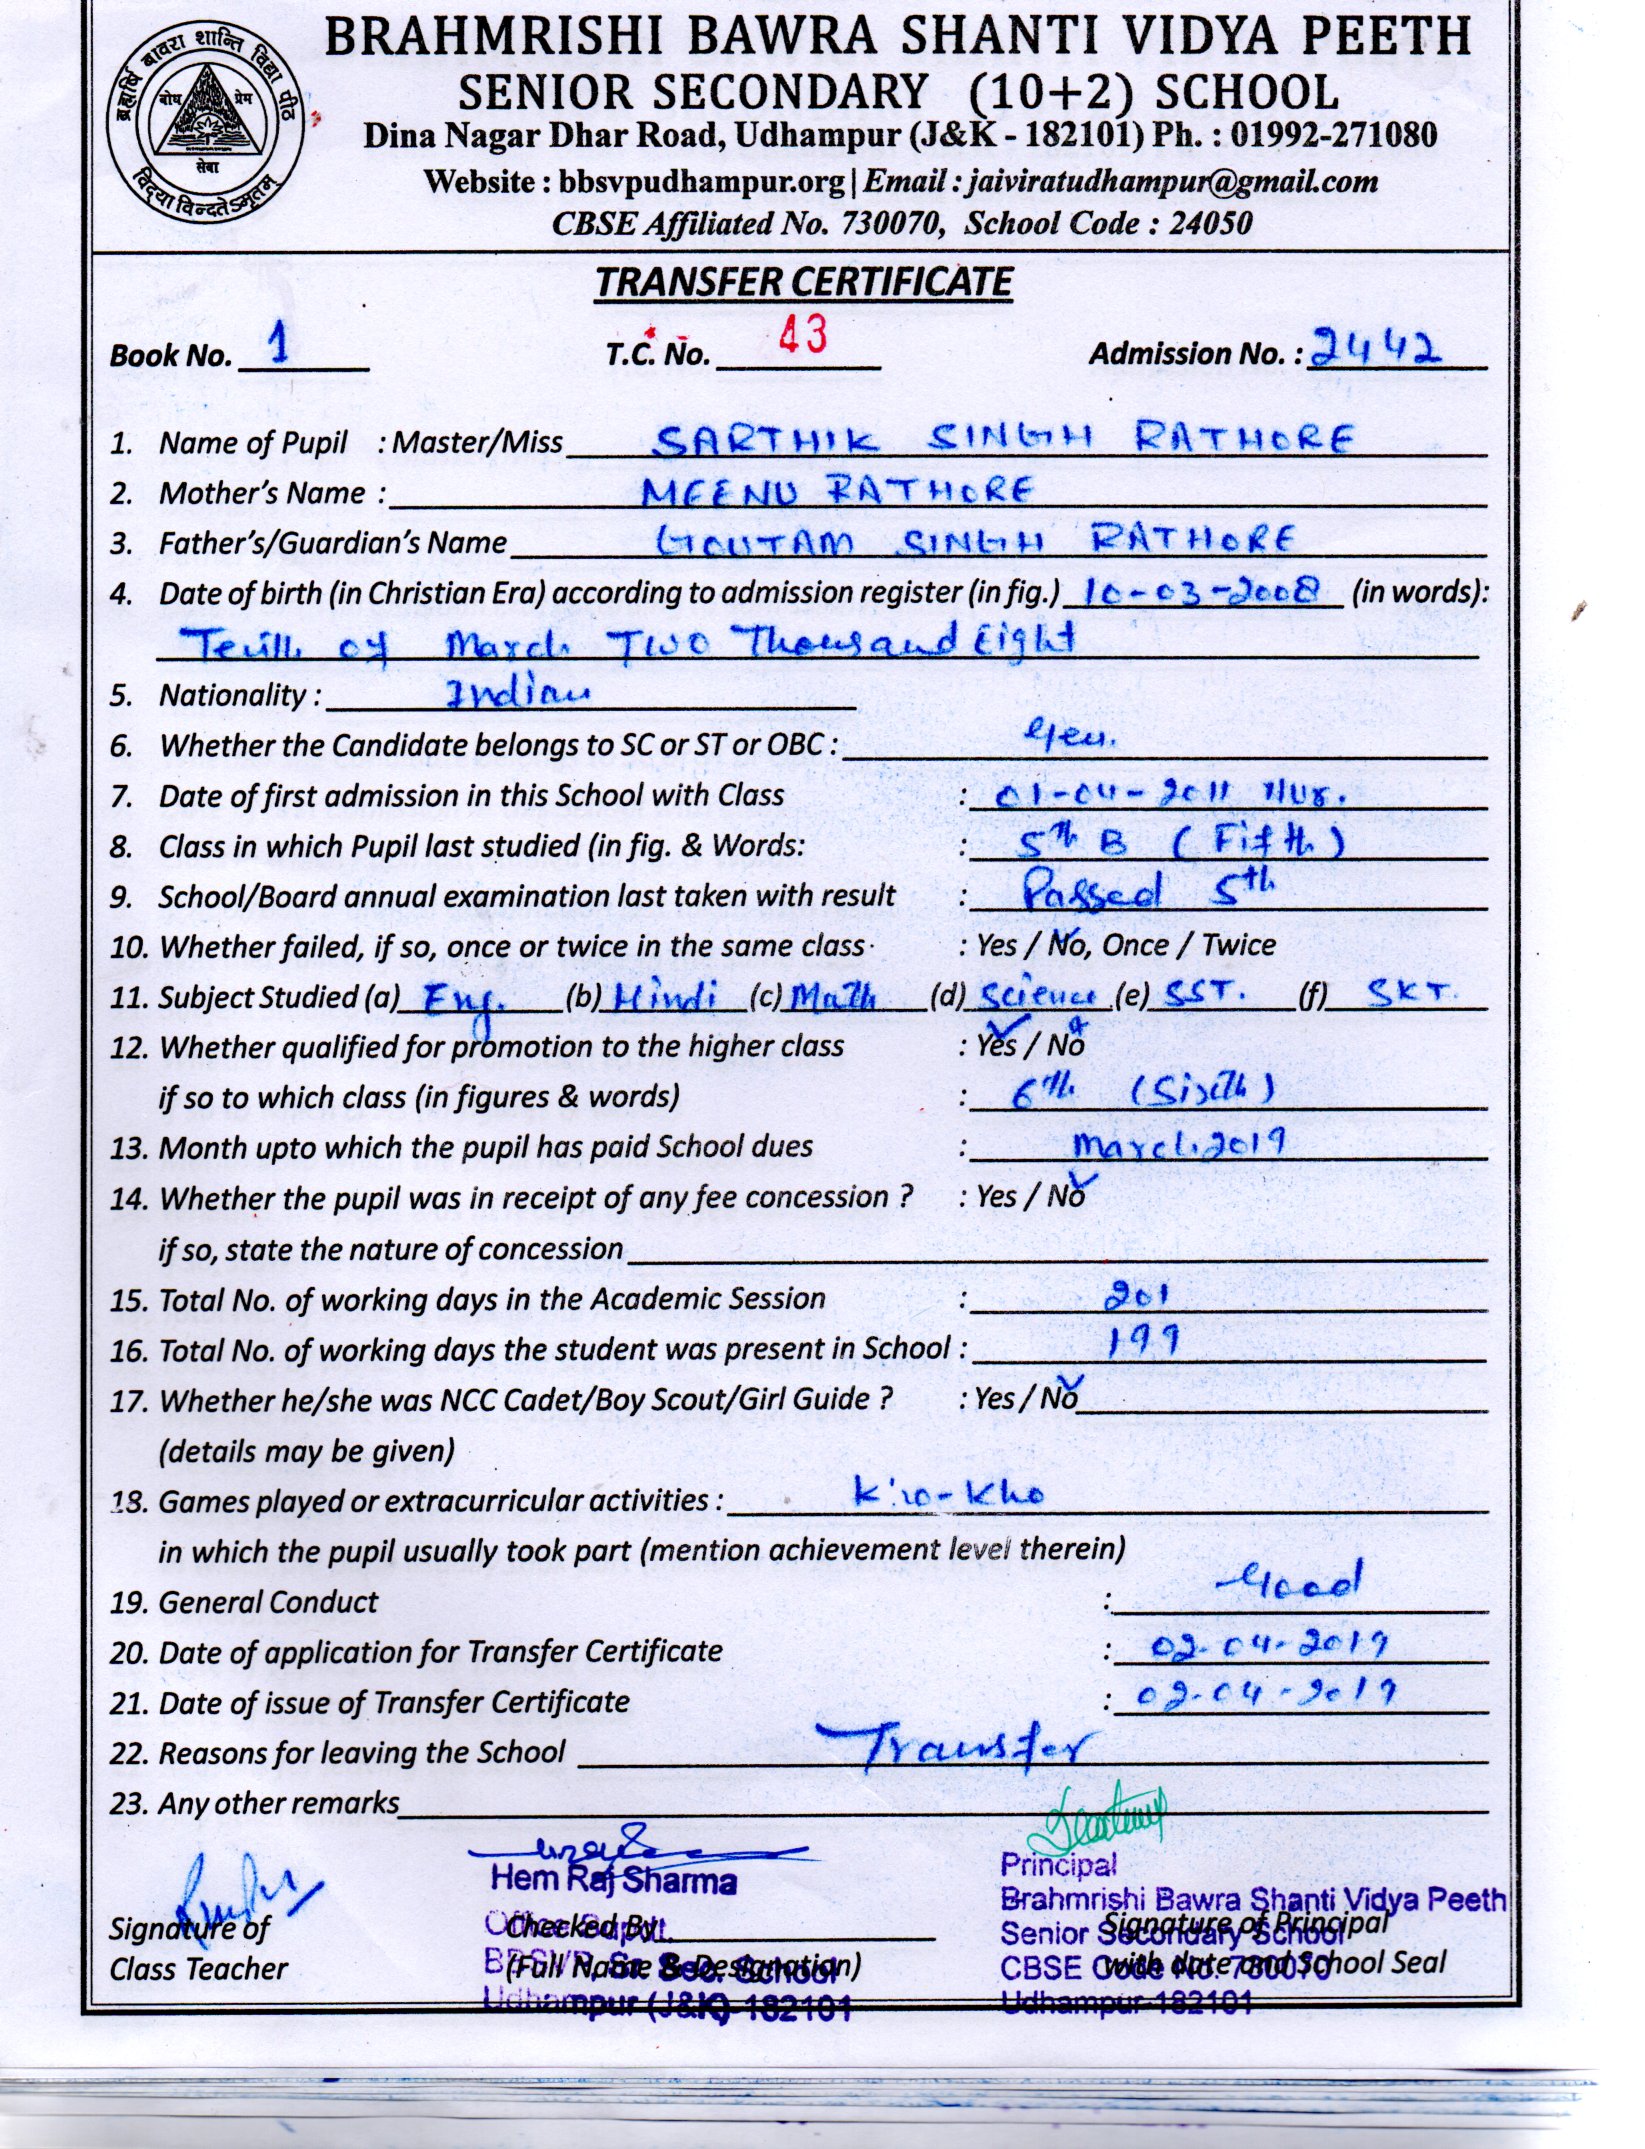 ब्रह्मर्षि बावरा शान्ति विद्या पीठ
बोध प्रेम
सेवा
विद्या विन्दतेऽमृतम्
BRAHMRISHI BAWRA SHANTI VIDYA PEETH
SENIOR SECONDARY (10+2) SCHOOL
Dina Nagar Dhar Road, Udhampur (J&K - 182101) Ph. : 01992-271080
Website : bbsvpudhampur.org| Email : jaiviratudhampur@gmail.com
CBSE Affiliated No. 730070, School Code : 24050
TRANSFER CERTIFICATE
Book No. 1 T.C. No. 43 Admission No. : 2442
1. Name of Pupil : Master/Miss SARTHIK SINGH RATHORE
2. Mother's Name : MEENU RATHORE
3. Father's/Guardian's Name GOUTAM SINGH RATHORE
4. Date of birth (in Christian Era) according to admission register (in fig.) 10-03-2008 (in words):
Tenth of March Two Thousand Eight
5. Nationality : Indian
6. Whether the Candidate belongs to SC or ST or OBC : Gen.
7. Date of first admission in this School with Class : 01-04-2011 Nur.
8. Class in which Pupil last studied (in fig. & Words: : 5th B (Fifth)
9. School/Board annual examination last taken with result : Passed 5th
10. Whether failed, if so, once or twice in the same class : Yes / No, Once / Twice
11. Subject Studied (a) Eng. (b) Hindi (c) Math (d) Science (e) SST. (f) SKT.
12. Whether qualified for promotion to the higher class : Yes / No
if so to which class (in figures & words) : 6th (Sixth)
13. Month upto which the pupil has paid School dues : March.2019
14. Whether the pupil was in receipt of any fee concession ? : Yes / No
if so, state the nature of concession
15. Total No. of working days in the Academic Session : 201
16. Total No. of working days the student was present in School : 199
17. Whether he/she was NCC Cadet/Boy Scout/Girl Guide ? : Yes / No
(details may be given)
18. Games played or extracurricular activities : Kho-Kho
in which the pupil usually took part (mention achievement level therein)
19. General Conduct : Good
20. Date of application for Transfer Certificate : 02-04-2019
21. Date of issue of Transfer Certificate : 02-04-2019
22. Reasons for leaving the School Transfer
23. Any other remarks
Hem Raj Sharma
Office Supdt.
BBSVP, Sr. Sec. School
Udhampur (J&K)-182101
Principal
Brahmrishi Bawra Shanti Vidya Peeth
Senior Secondary School
CBSE Code No. 730070
Udhampur-182101
Signature of Checked By Signature of Principal
Class Teacher (Full Name & Designation) with date and School Seal